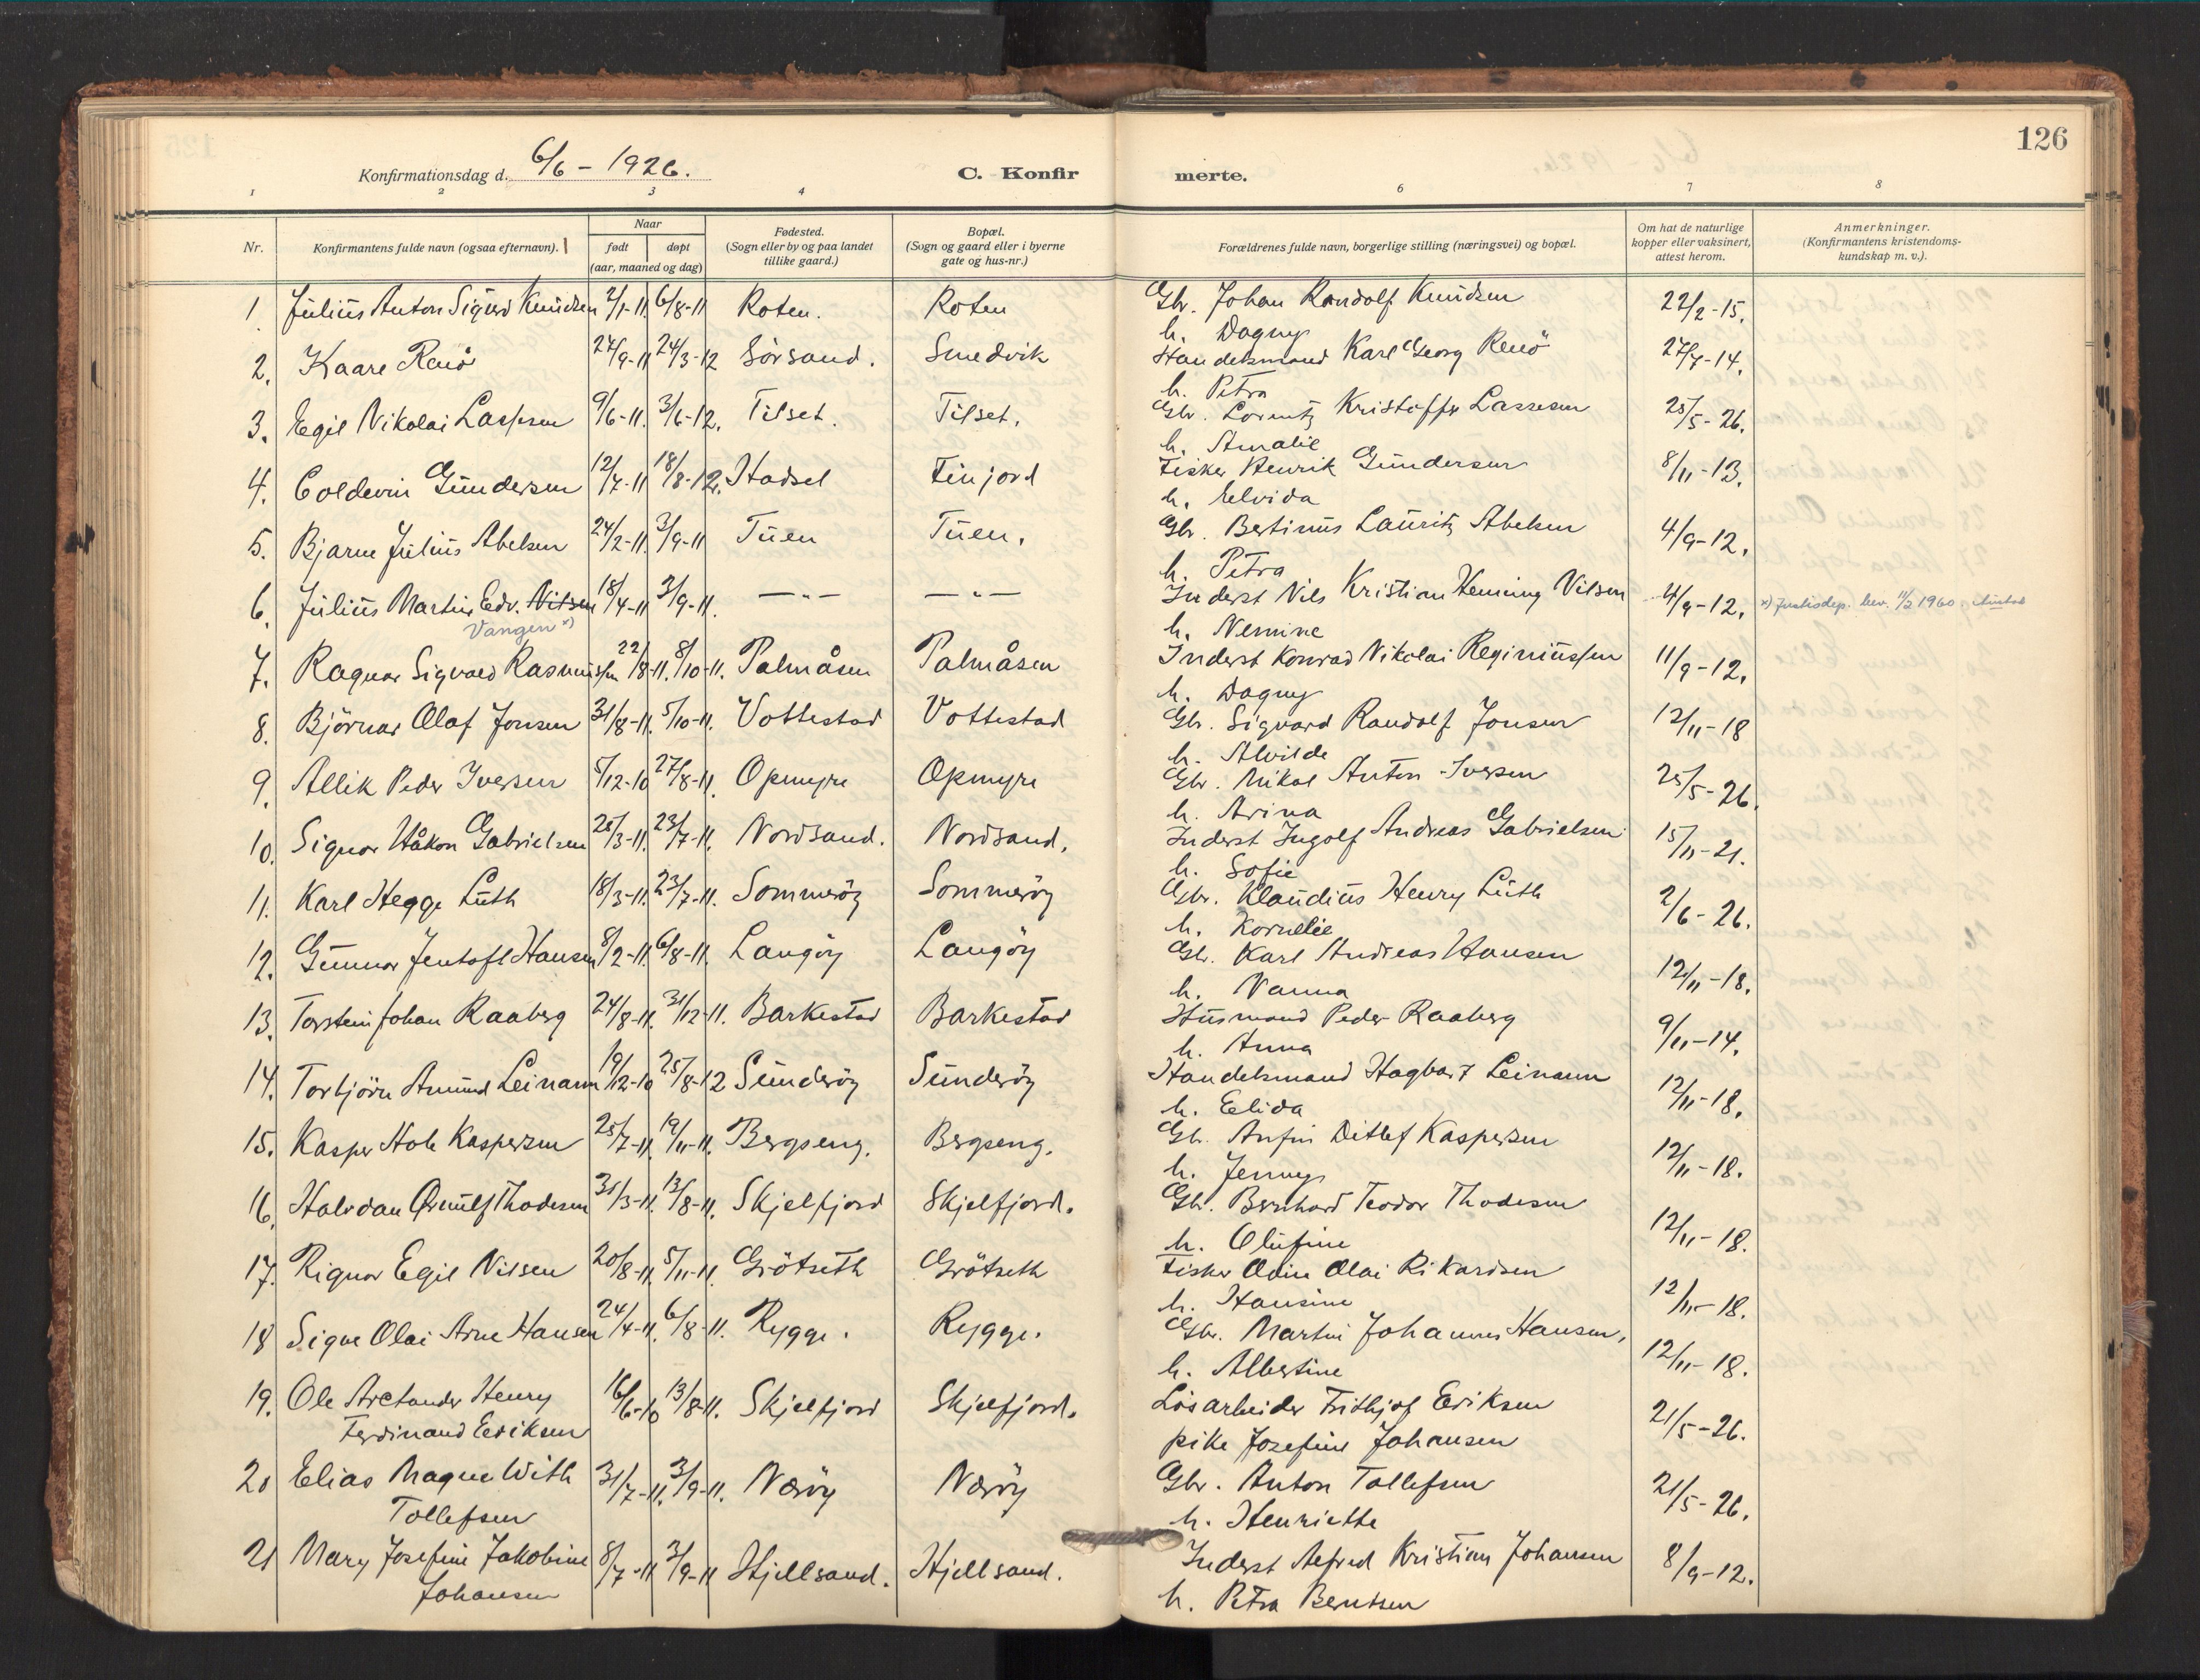 126
Konfirmationsdag d. 6/6 - 1926.
C. Konfir
merte.
1 2 3 4 6 7 8
Nr.
Konfirmantens fulde navn (ogsaa efternavn).
Naar
født
døpt
(aar, maaned og dag)
Fødested.
(Sogn eller by og paa landet
tillike gaard.)
Bopæl.
(Sogn og gaard eller i byerne
gate og hus-nr.)
Forældrenes fulde navn, borgerlige stilling (næringsvei) og bopæl.
Om hat de naturlige
kopper eller vaksinert,
attest herom.
Anmerkninger.
(Konfirmantens kristendoms-
kundskap m. v.).
1. Julius Anton Sigurd Knudsen 2/1-11 6/8-11 Roten. Roten Gbr. Johan Randolf Knudsen 22/2-15.
h. Dagny
2. Kaare Renö 27/9-11 24/3-12 Sörsand. Smedvik Handelsmand Karl Georg Renö 27/7-14.
h. Petra
3. Egil Nikolai Lassesen 9/6-11. 3/6-12. Tilset. Tilset. Gbr. Lorentz Kristoffer Lassesen 25/5-26.
h. Amalie
4. Coldevin Gundersen 12/7-11 18/8-12. Hadsel Finjord Fisker Henrik Gundersen 8/11-13.
h. Elvida
5. Bjarne Julius Abelsen 24/2-11. 3/9-11 Tuen Tuen. Gbr. Bertinus Lauritz Abelsen 4/9-12.
h. Petra
6. Julius Martin Edv. Nilsen 18/4-11 3/9-11. —"— —"— Inderst Nils Kristian Henning Nilsen 4/9-12. x) Justisdep. bev. 11/2 1960.
Vangen x)
h. Nemine
7. Ragnar Sigvard Rasmussen 22/8-11. 8/10-11. Palmåsen Palmåsen Inderst Konrad Nikolai Reginiussen 11/9-12.
h. Dagny
8. Björnar Olaf Jonsen 31/8-11. 5/10-11. Vottestad Vottestad Gbr. Sigvard Randolf Jonsen 12/11-18
h. Alvilde
9. Allik Peder Iversen 5/12-10 27/8-11. Opmyre Opmyre Gbr. Mikal Anton Iversen 25/5-26.
h. Arina
10. Signar Håkon Gabrielsen 28/3-11. 23/7-11. Nordsand. Nordsand. Inderst Ingolf Andreas Gabrielsen 15/11-21.
h. Sofie
11. Karl Hegge Luth 18/3-11. 23/7-11. Sommeröy Sommeröy Gbr. Klaudius Henry Luth 2/6-26.
h. Kornelie
12. Gunnar Jentoft Hansen 8/2-11. 6/8-11. Langöy Langöy Gbr. Karl Andreas Hansen 12/11-18.
h. Nanna
13. Torstein Johan Raaberg 24/8-11. 31/12-11. Barkestad Barkestad Husmand Peder Raaberg 9/11-14.
h. Anna
14. Torbjörn Amund Leinann 19/12-10 25/8-12 Sunderöy Sunderöy Handelsmand Hagbart Leinann 12/11-18.
h. Elida
15. Kasper Hole Kaspersen 25/7-11. 19/11-11. Bergseng. Bergseng. Gb. Anfin Ditlef Kaspersen 12/11-18.
h. Jenny
16. Halvdan Ørnulf Thodesen 31/3-11. 13/8-11. Skjelfjord Skjelfjord. Gbr. Bernhard Teodor Thodesen 12/11-18.
h. Olufine
17. Rignor Egil Nilsen 20/8-11. 5/11-11. Grötseth Grötseth Fisker Odin Olai Rikardsen 12/11-18.
h. Hansine
18 Signe Olai Arne Hansen 24/4-11. 6/8-11. Rygge. Rygge. Gbr. Martin Johannes Hansen, 12/11-18.
h. Albertine
19. Ole Arctander Henry 16/6-10 13/8-11. Skjelfjord Skjelfjord. Lösarbeider Fritjhof Eriksen 21/5-26.
Ferdinand Eriksen pike Josefine Johansen
20 Elias Magne With 31/7-11. 3/9-11. Næröy Næröy Gbr. Anton Tollefsen 21/5-26.
Tollefsen h. Henriette
21 Mary Josefine Jakobine 8/7-11 3/9-11 Hjellsand. Hjellsand. Inderst Alfred Kristian Johansen 8/9-12.
Johansen h. Petra Berntsen